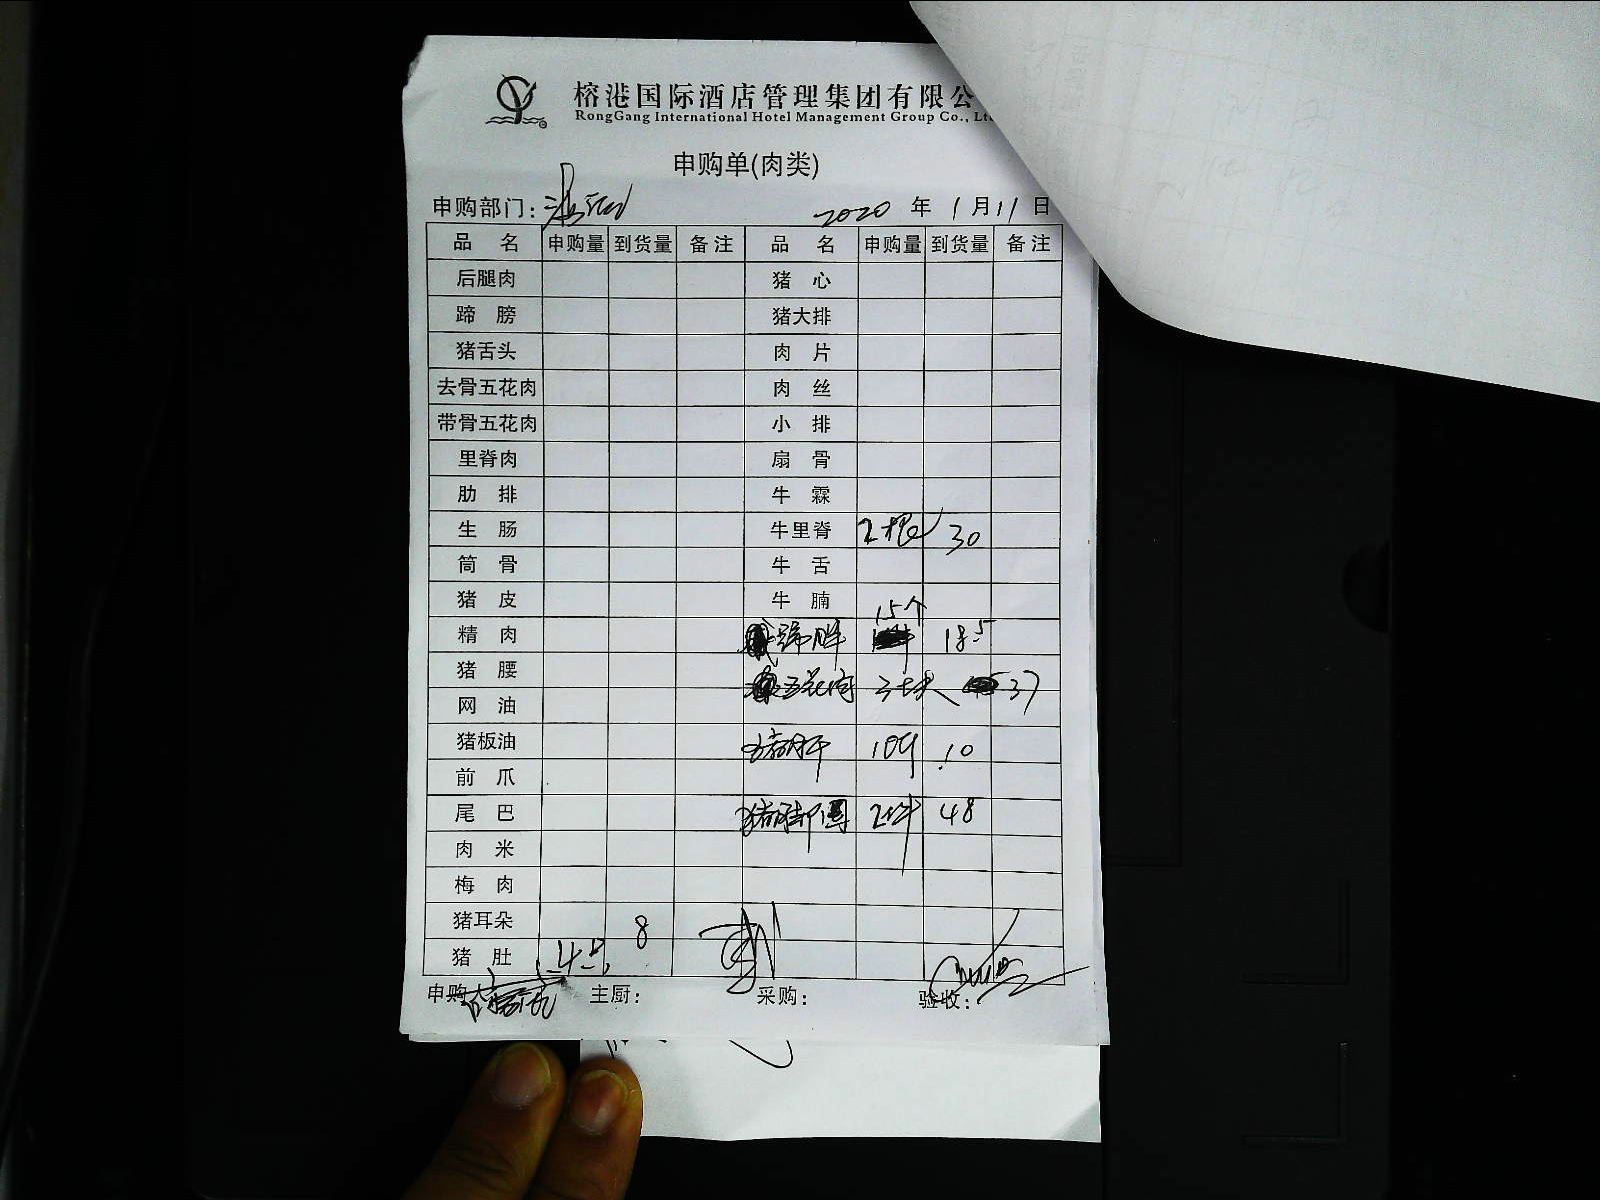 榕港国际酒店管理集团有限公
RongGang International Hotel Management Group Co., Lt
申购单(肉类)
申购部门: 2020 年 1 月 11 日
品 名 申购量 到货量 备注 品 名 申购量 到货量 备注
后腿肉 猪 心
蹄 膀 猪大排
猪舌头 肉 片
去骨五花肉 肉 丝
带骨五花肉 小 排
里脊肉 扇 骨
肋 排 牛 霖
生 肠 牛里脊 2根 30
筒 骨 牛 舌
猪 皮 牛 腩
精 肉 15个 18.5
猪 腰 五花肉 3块 37
网 油
猪板油 猪肝 10斤 10
前 爪
尾 巴 猪脚 2件 48
肉 米
梅 肉
猪耳朵
猪 肚 8
申购 主厨: 采购: 验收: